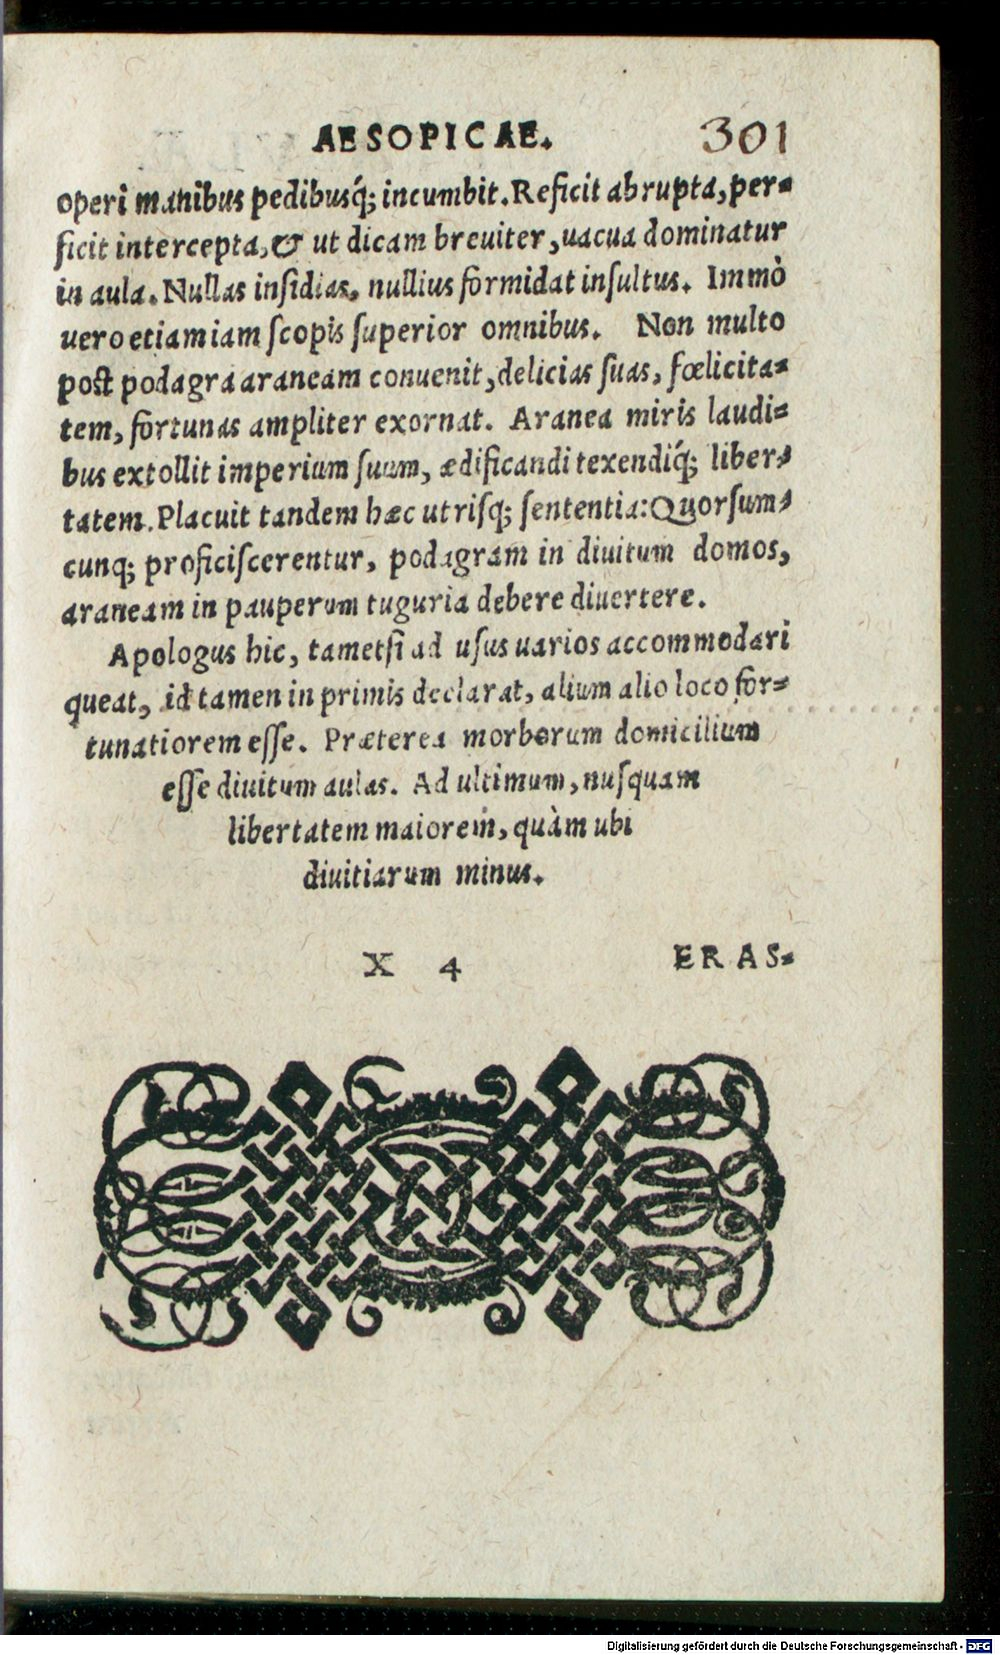 AESOPICAE. 301
operi manibus pedibusq́; incumbit. Reficit abrupta, per-
ficit intercepta, & ut dicam breuiter, uacua dominatur
in aula. Nullas insidias, nullius formidat insultus. Immò
uero etiam iam scopis superior omnibus. Non multo
post podagra araneam conuenit, delicias suas, fœlicita-
tem, fortunas ampliter exornat. Aranea miris laudi-
bus extollit imperium suum, ædificandi texendiq́; liber-
tatem. Placuit tandem hæc utrisq; sententia: Quorsum-
cunq; proficiscerentur, podagram in diuitum domos,
araneam in pauperum tuguria debere diuertere.
Apologus hic, tametsi ad usus uarios accommodari
queat, id tamen in primis declarat, alium alio loco for-
tunatiorem esse. Præterea morborum domicilium
esse diuitum aulas. Ad ultimum, nusquam
libertatem maiorem, quàm ubi
diuitiarum minus.
X 4 ERAS-
Digitalisierung gefördert durch die Deutsche Forschungsgemeinschaft - DFG